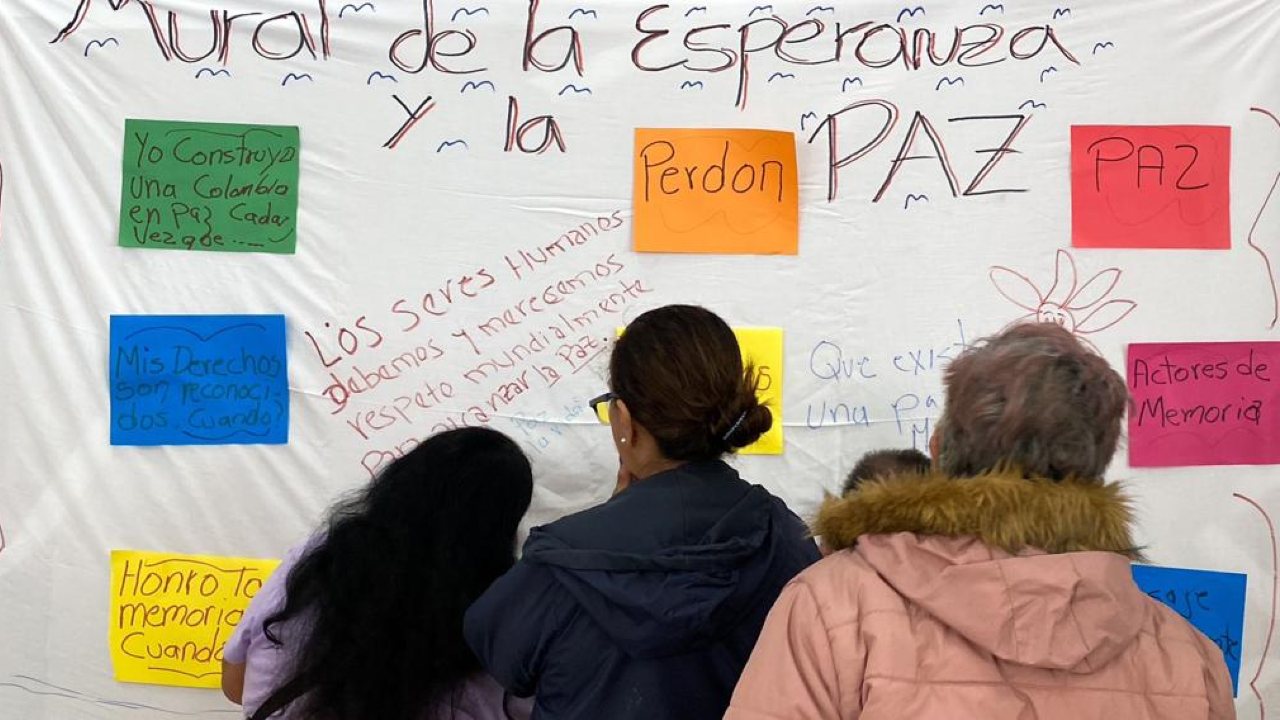 Mural de la Esperanza
Y la PAZ
Yo Construyo
una Colombia
en Paz Cada
Vez que.....
Perdon
PAZ
Los seres Humanos
debemos y merecemos
respeto mundialmente
Para alcanzar la Paz.
Mis Derechos
son reconoci-
dos. Cuando?
Que exist
una pa
Actores de
Memoria
Honro Ta
memoria
Cuando